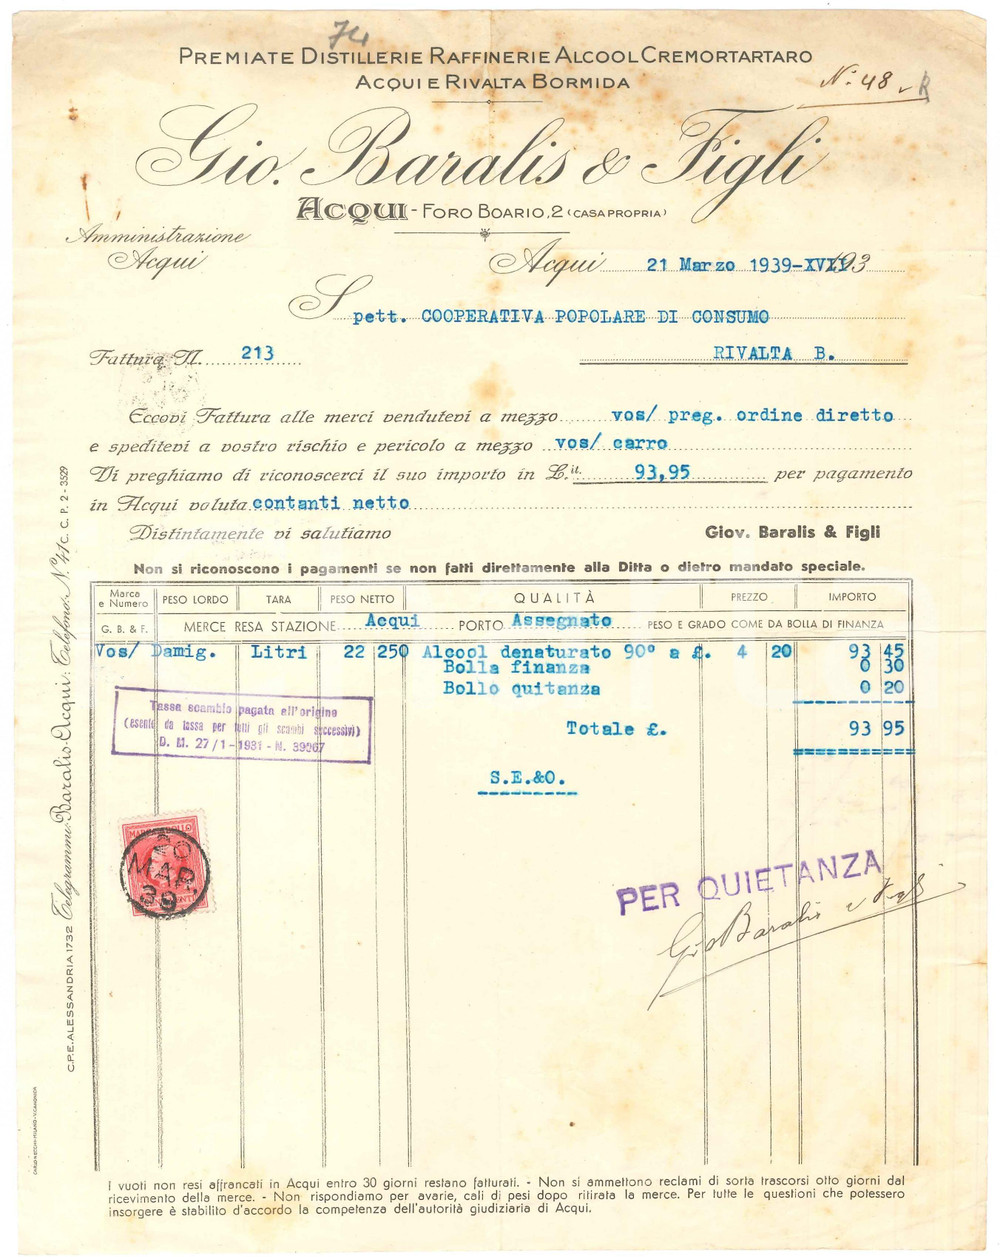 74
PREMIATE DISTILLERIE RAFFINERIE ALCOOL CREMORTARTARO
ACQUI E RIVALTA BORMIDA
N. 48
Gio. Baralis & Figli
ACQUI - FORO BOARIO, 2 (CASA PROPRIA)
Amministrazione
Acqui
Acqui 21 Marzo 1939-XVII 193
Spett. COOPERATIVA POPOLARE DI CONSUMO
RIVALTA B.
Fattura N. 213
Eccovi Fattura alle merci vendutevi a mezzo vos/ preg. ordine diretto
e speditevi a vostro rischio e pericolo a mezzo vos/ carro
Vi preghiamo di riconoscerci il suo importo in L.it. 93,95 per pagamento
in Acqui valuta contanti netto
Distintamente vi salutiamo Giov. Baralis & Figli
Non si riconoscono i pagamenti se non fatti direttamente alla Ditta o dietro mandato speciale.
Marca e Numero PESO LORDO TARA PESO NETTO QUALITÀ PREZZO IMPORTO
G. B. & F. MERCE RESA STAZIONE Acqui PORTO Assegnato PESO E GRADO COME DA BOLLA DI FINANZA
Vos/ Damig. Litri 22 250 Alcool denaturato 90° a £. 4 20 93 45
Bolla finanza 0 30
Bollo quitanza 0 20
Totale £. 93 95
S.E.&O.
Tassa scambio pagata all'origine
(esente da tassa per tutti gli scambi successivi)
D. M. 27/1-1931 - N. 39067
20
MAR
39
PER QUIETANZA
Gio Baralis e Figli
C.P.E. ALESSANDRIA 1732 Telegrammi: Baralis-Acqui: Telefono N. 41 C. C. P. 2 - 3529
I vuoti non resi affrancati in Acqui entro 30 giorni restano fatturati. - Non si ammettono reclami di sorta trascorsi otto giorni dal
ricevimento della merce. - Non rispondiamo per avarie, cali di pesi dopo ritirata la merce. Per tutte le questioni che potessero
insorgere è stabilito d'accordo la competenza dell'autorità giudiziaria di Acqui.